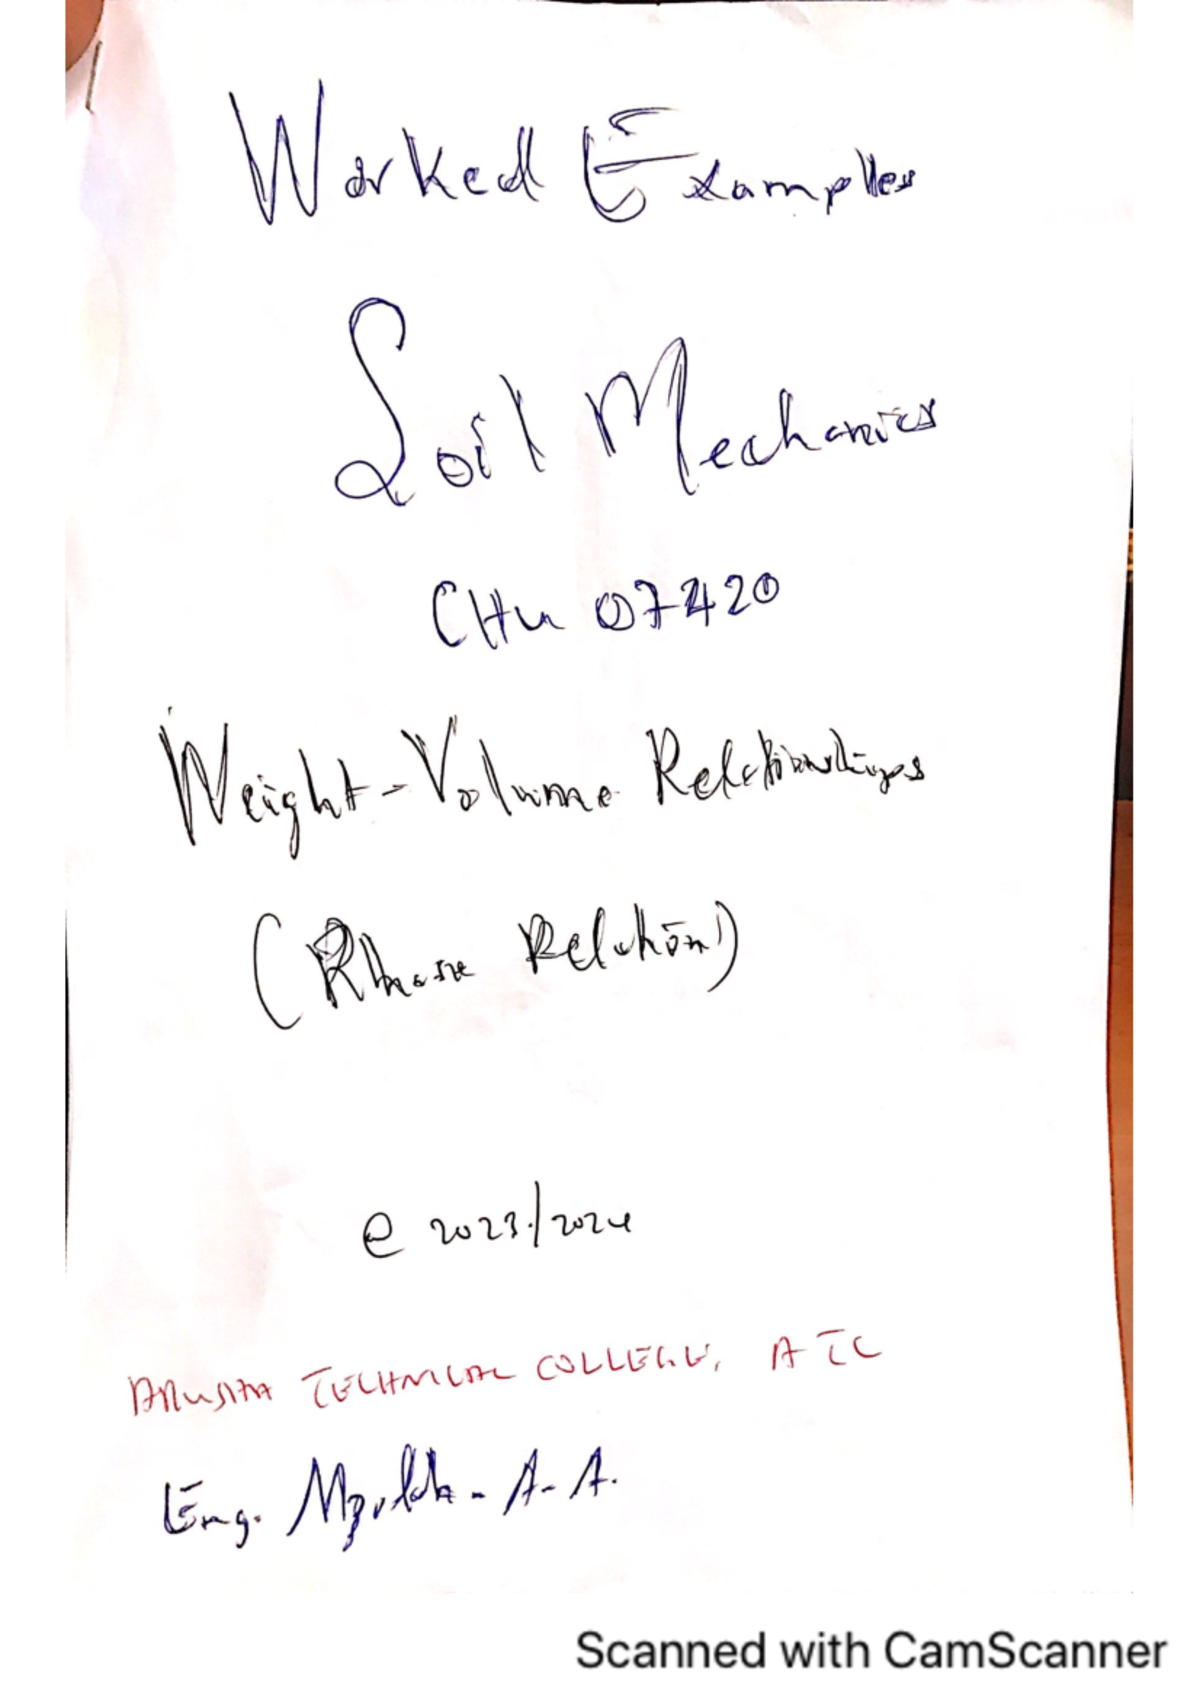 Worked Examples
Soil Mechanics
CHu 07420
Weight-Volume Relationships
(Phase Relation)
@ 2023/2024
ARUSHA TECHNICAL COLLEGE, ATC
Eng. A-A.
Scanned with CamScanner